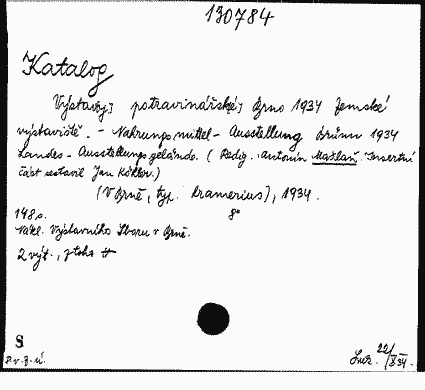 130784
Katalog
Výstavy potravinářské, Brno 1934 Zemské
výstaviště. - Nahrungsmittel - Ausstellung Brünn 1934
Landes - Ausstellungsgelände. ( Redig. Antonín Mašlaň. Insertní
část sestavil Jan Köhler.)
(V Brně, typ. Kramerius), 1934.
148 s. 8°
Nákl. Výstavního Sboru v Brně.
2 výt.,
S
22/X 34.